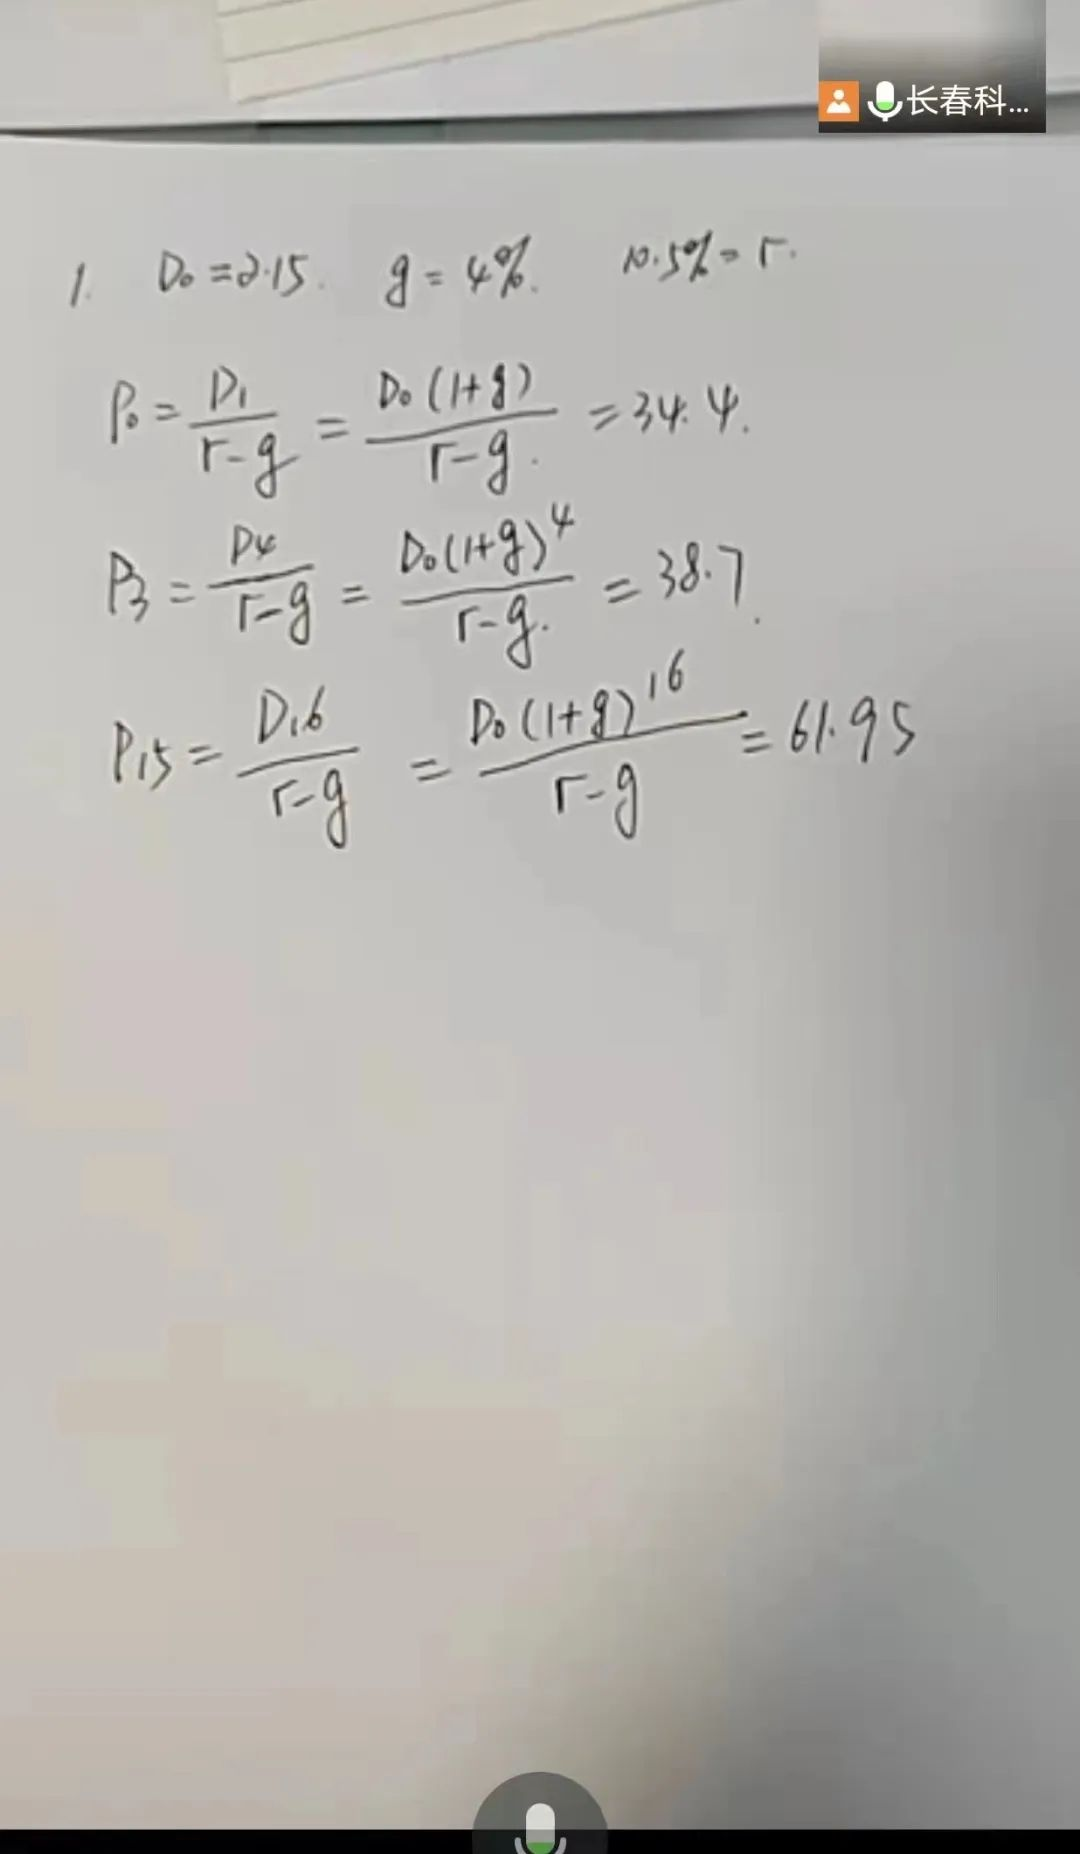 长春科...
1. D₀=2.15. g=4%. 10.5%=r.
P₀=D₁/(r-g)=D₀(1+g)/(r-g).=34.4.
P₃=D₄/(r-g)=D₀(1+g)⁴/(r-g).=38.7.
P₁₅=D₁₆/(r-g)=D₀(1+g)¹⁶/(r-g)=61.95